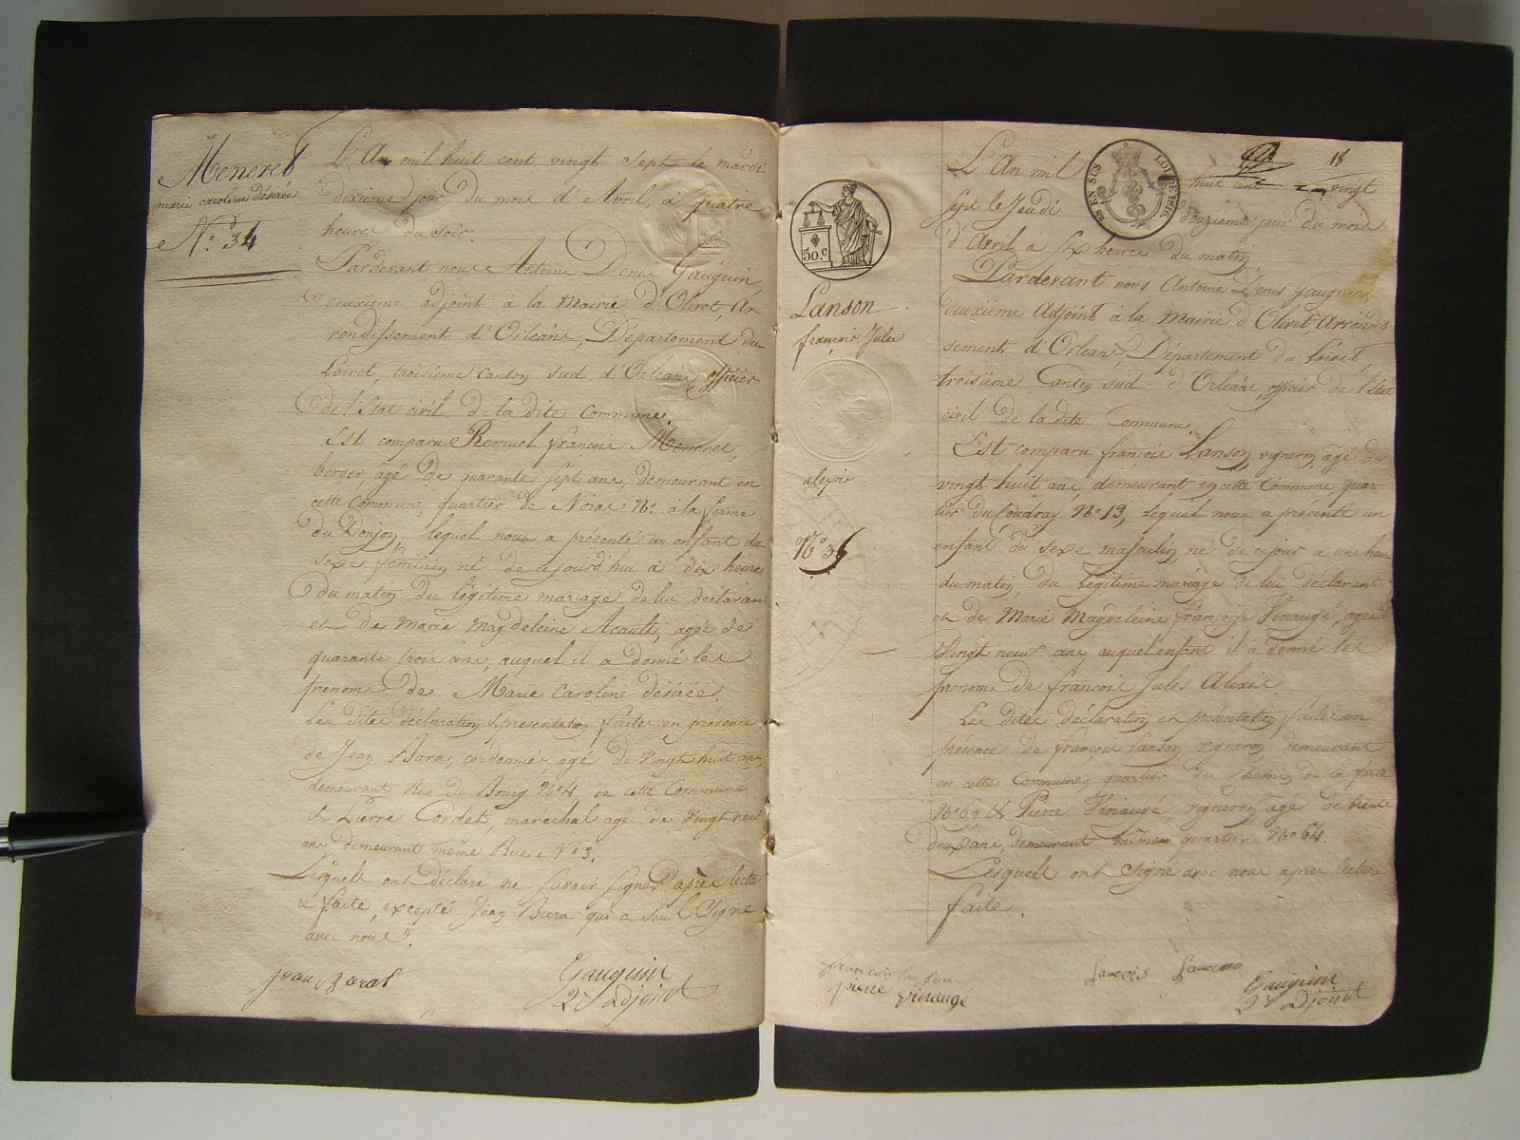 Meneret
marie caroline désirée
N.° 34
L'An mil huit cent vingt sept le mardi
dixième jour du mois d'Avril, à quatre
heures du soir.
Pardevant nous Antoine Denis Gauguin,
deuxième adjoint à la Mairie d'Olivet, Ar-
rondissement d'Orléans, Département du
Loiret, troisième canton sud d'Orléans, officier
De l'Etat civil de la dite Commune.
Est comparu François Meneret,
berger, agé de quarante sept ans, demeurant en
cette Commune, quartier de Noras N.° à la ferme
du Donjon, lequel nous a présenté un enfant du
sexe féminin né de cejourd'hui à dix heures
Du matin du légitime mariage de lui déclarant
et de Marie Magdeleine Acault, agée de
quarante trois ans, auquel il a donné les
prénoms de Marie Caroline désirée.
Les dites déclaration & présentation faites en présence
de Jean Bara, cordonnier, agé de vingt huit ans
demeurant Rue du Bourg N° 4, en cette Commune
& Pierre Cordet, marechal agé de vingt neuf
ans demeurant même Rue N° 3.
Lesquels ont déclaré ne savoir signer après lectu-
re faite, excepté Jean Bara qui a Signé
avec nous.
jean Barat
Gauguin
2e Adjoint
50 C
Lanson
françois Jules
alexis
N° 35
18
L'An mil huit cent vingt
sept le Jeudi douzième jour du mois
d'Avril à six heures du matin
Pardevant nous Antoine Denis Gauguin,
deuxième Adjoint à la Mairie d'Olivet Arrondis-
sement d'Orléans, Département du Loiret,
troisième Canton Sud d'Orléans, officier de l'Etat
civil de la dite Commune.
Est comparu françois Lanson, vigneron, agé de
vingt huit ans, demeurant en cette Commune, quar
tier du Coudray N° 13, lequel nous a présenté un
enfant du sexe masculin, né de ce jour à une heure
du matin, du légitime mariage de lui déclarant
et de Marie Magdeleine françoise Vinaugé, agée
Vingt neuf ans, auquel enfant il a donné les
prenoms de françois Jules Alexis.
Les dites déclaration et présentation faites en
présence de françois Lanson, vigneron demeurant
en cette Commune, quartier du
N° 69 & Pierre Vinaugé, vigneron, agé de trente
deux ans, demeurant même quartier N° 64.
Lesquels ont signé avec nous après lecture
faite.
pierre vinaugé
Gauguin
2e Adjoint